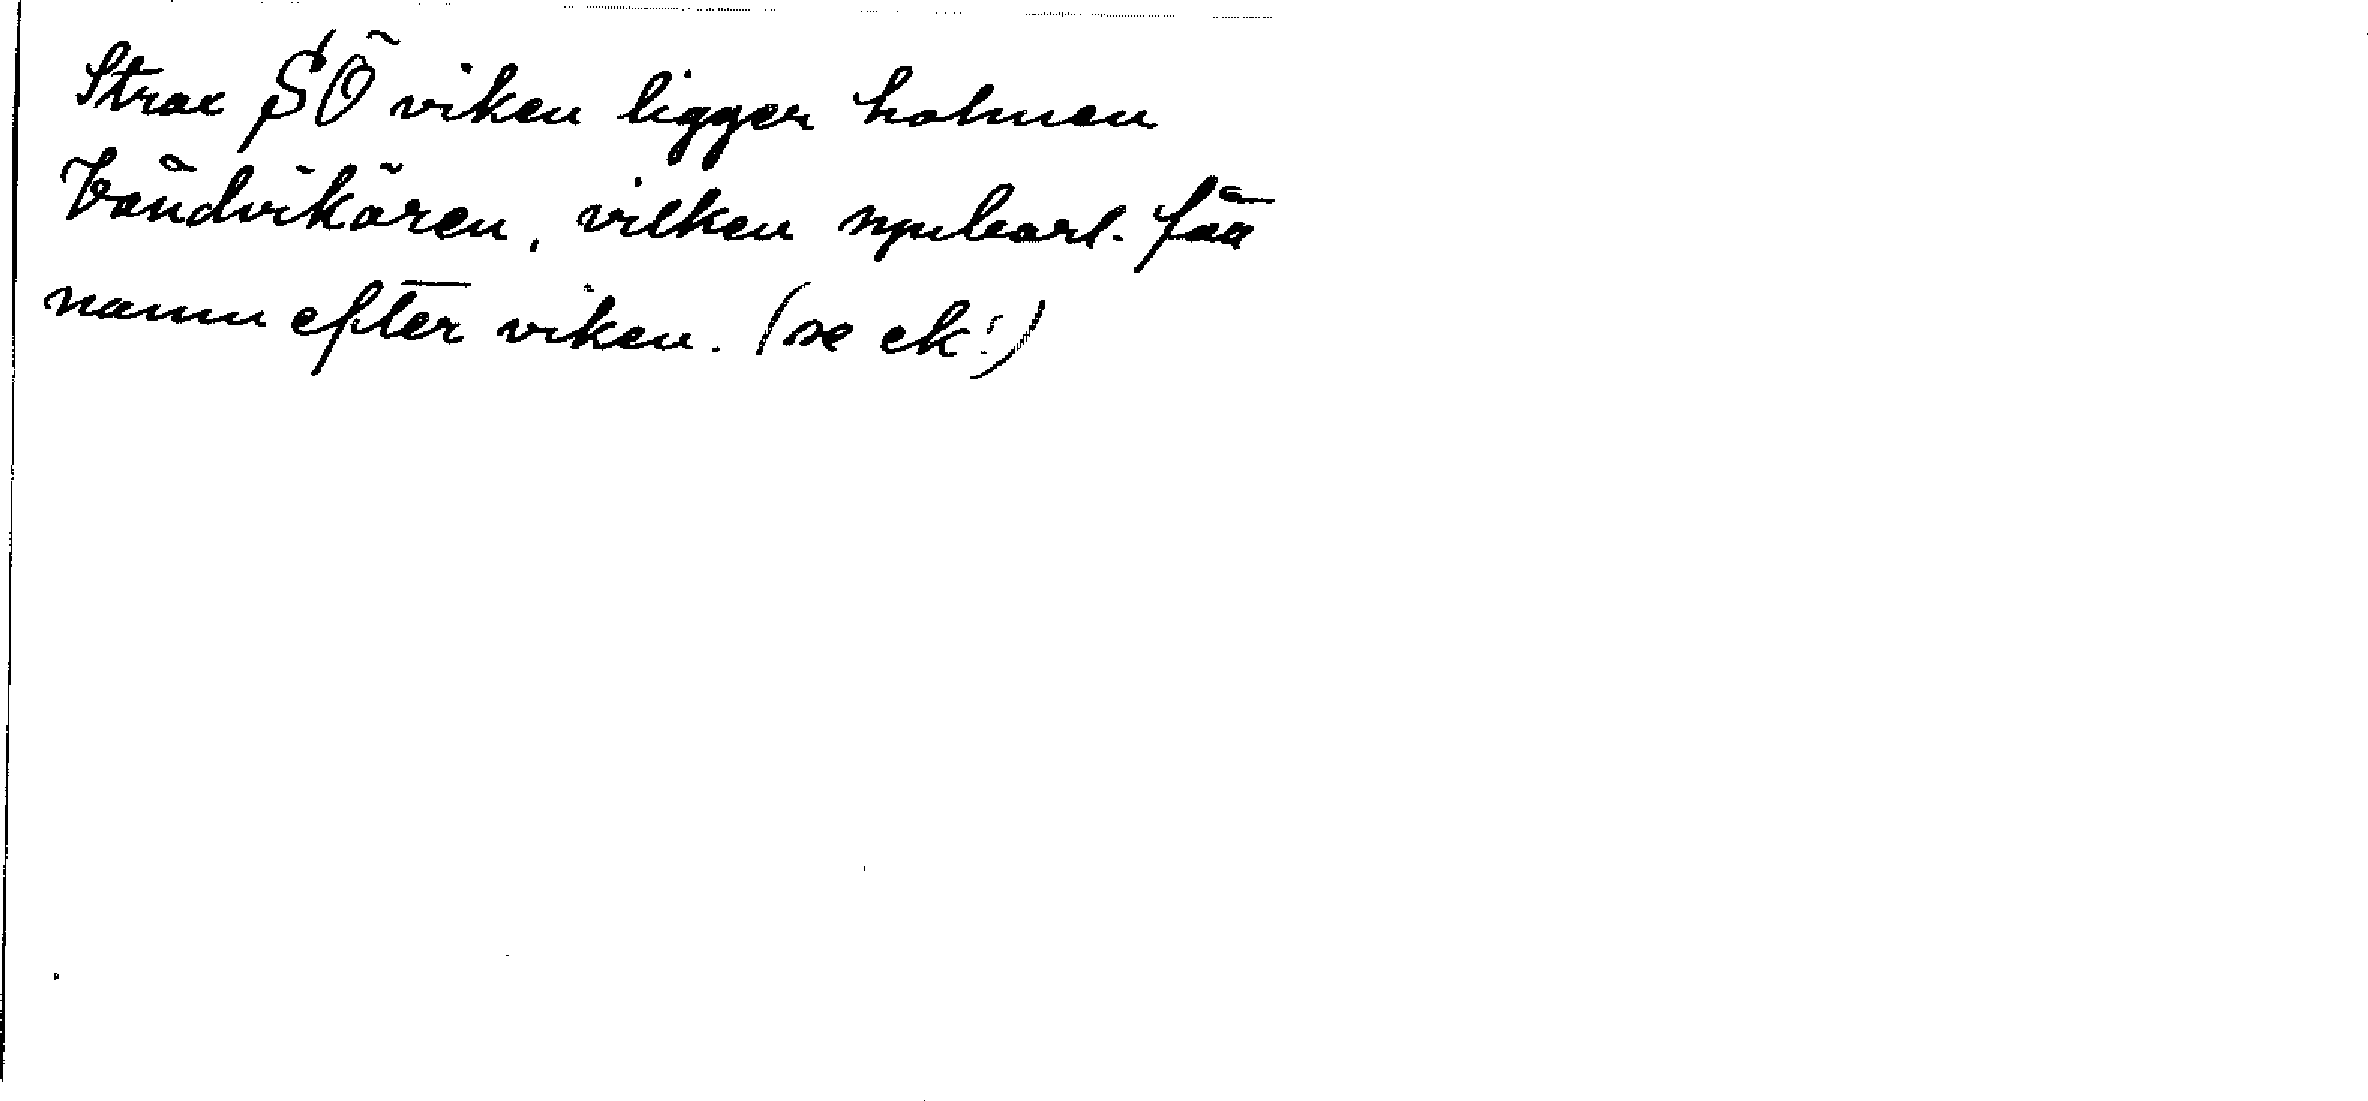 Strax SÖ viken ligger holmen
Båndvikören, vilken uppbarl. fått
namn efter viken. (se ek!)